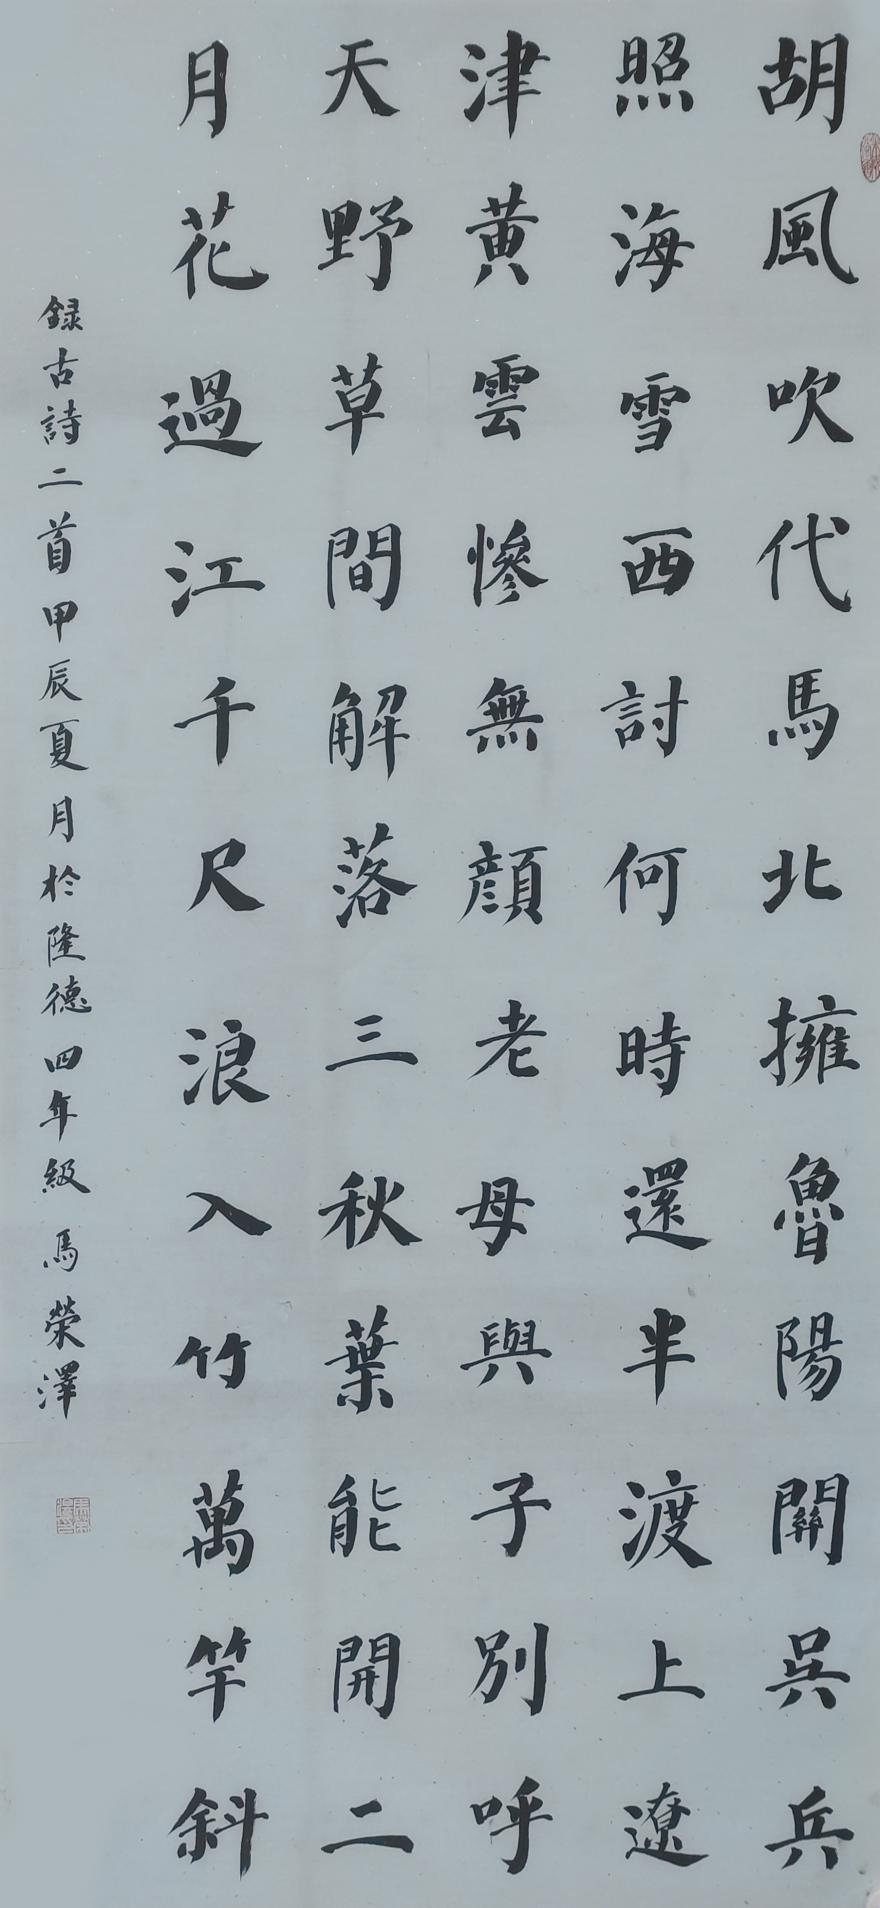 胡風吹代馬北擁魯陽關吳兵
照海雪西討何時還半渡上遼
津黃雲慘無顏老母與子別呼
天野草間解落三秋葉能開二
月花過江千尺浪入竹萬竿斜
録古詩二首甲辰夏月於隆德四年級馬榮澤